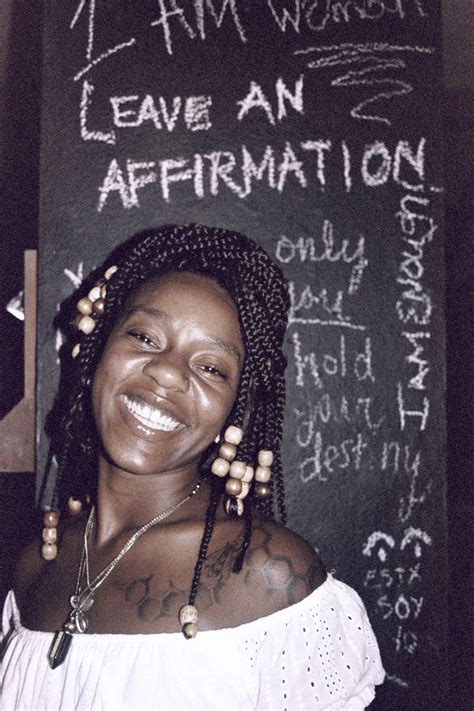 I AM
LEAVE AN
AFFIRMATION
only
you
hold
your
destiny
I AM ENOUGH
ESTX
SOY
YO